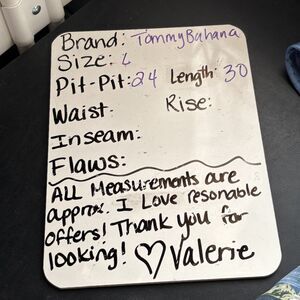 Brand: TommyBahana
Size: L
Pit-Pit: 24 Length 30
Waist: Rise:
Inseam:
Flaws:
ALL Measurements are
approx. I Love resonable
offers! Thank you for
looking! ♡ Valerie